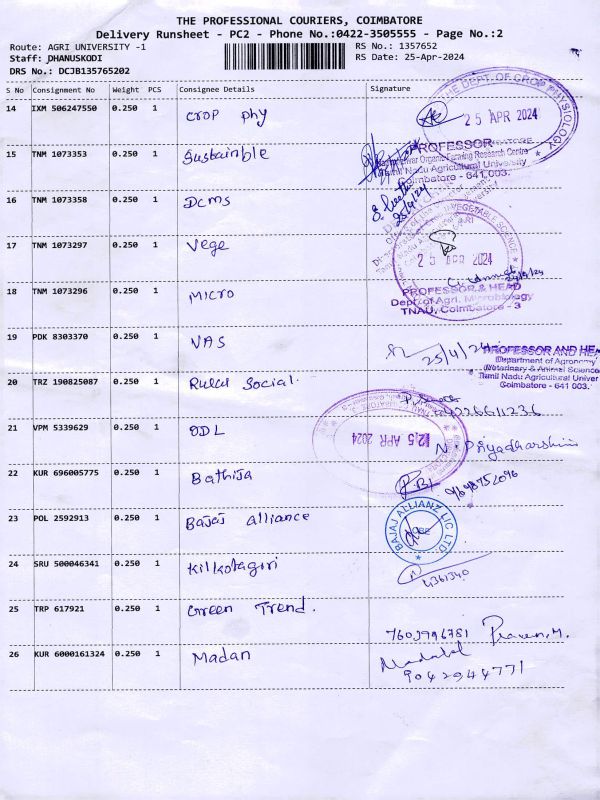 THE PROFESSIONAL COURIERS, COIMBATORE
Delivery Runsheet - PC2 - Phone No.:0422-3505555 - Page No.:2
Route: AGRI UNIVERSITY -1 RS No.: 1357652
Staff: DHANUSKODI RS Date: 25-Apr-2024
DRS No.: DCJB135765202
S No Consignment No Weight PCS Consignee Details Signature
14 IXM 506247550 0.250 1 Crop phy
THE DEPT. OF CROP PHYSIOLOGY
25 APR 2024
15 TNM 1073353 0.250 1 Sustainble
PROFESSOR
Organic Farming Research Centre
Tamil Nadu Agricultural University
Coimbatore - 641 003.
16 TNM 1073358 0.250 1 Dcms
25/4/24
17 TNM 1073297 0.250 1 Vege
VEGETABLE SCIENCE
25 APR 2024
18 TNM 1073296 0.250 1 MICRO
PROFESSOR & HEAD
Dept. of Agri. Microbiology
TNAU, Coimbatore - 3
19 PDK 8303370 0.250 1 VAS
25/4/24
PROFESSOR AND HEA
Department of Agronomy
(Veterinary & Animal Science
Tamil Nadu Agricultural Univer
Coimbatore - 641 003.
20 TRZ 190825087 0.250 1 Rural Social.
04226611236
21 VPM 5339629 0.250 1 ODL
25 APR 2024
N. Priyadharshini
22 KUR 696005775 0.250 1 Bathija
9698752096
23 POL 2592913 0.250 1 Bajaj alliance
BAJAJ ALLIANZ LIC LTD.
CBE
24 SRU 500046341 0.250 1 Kilkotagiri
25 TRP 617921 0.250 1 Green Trend.
Praveen.M.
26 KUR 6000161324 0.250 1 Madan
9042944771